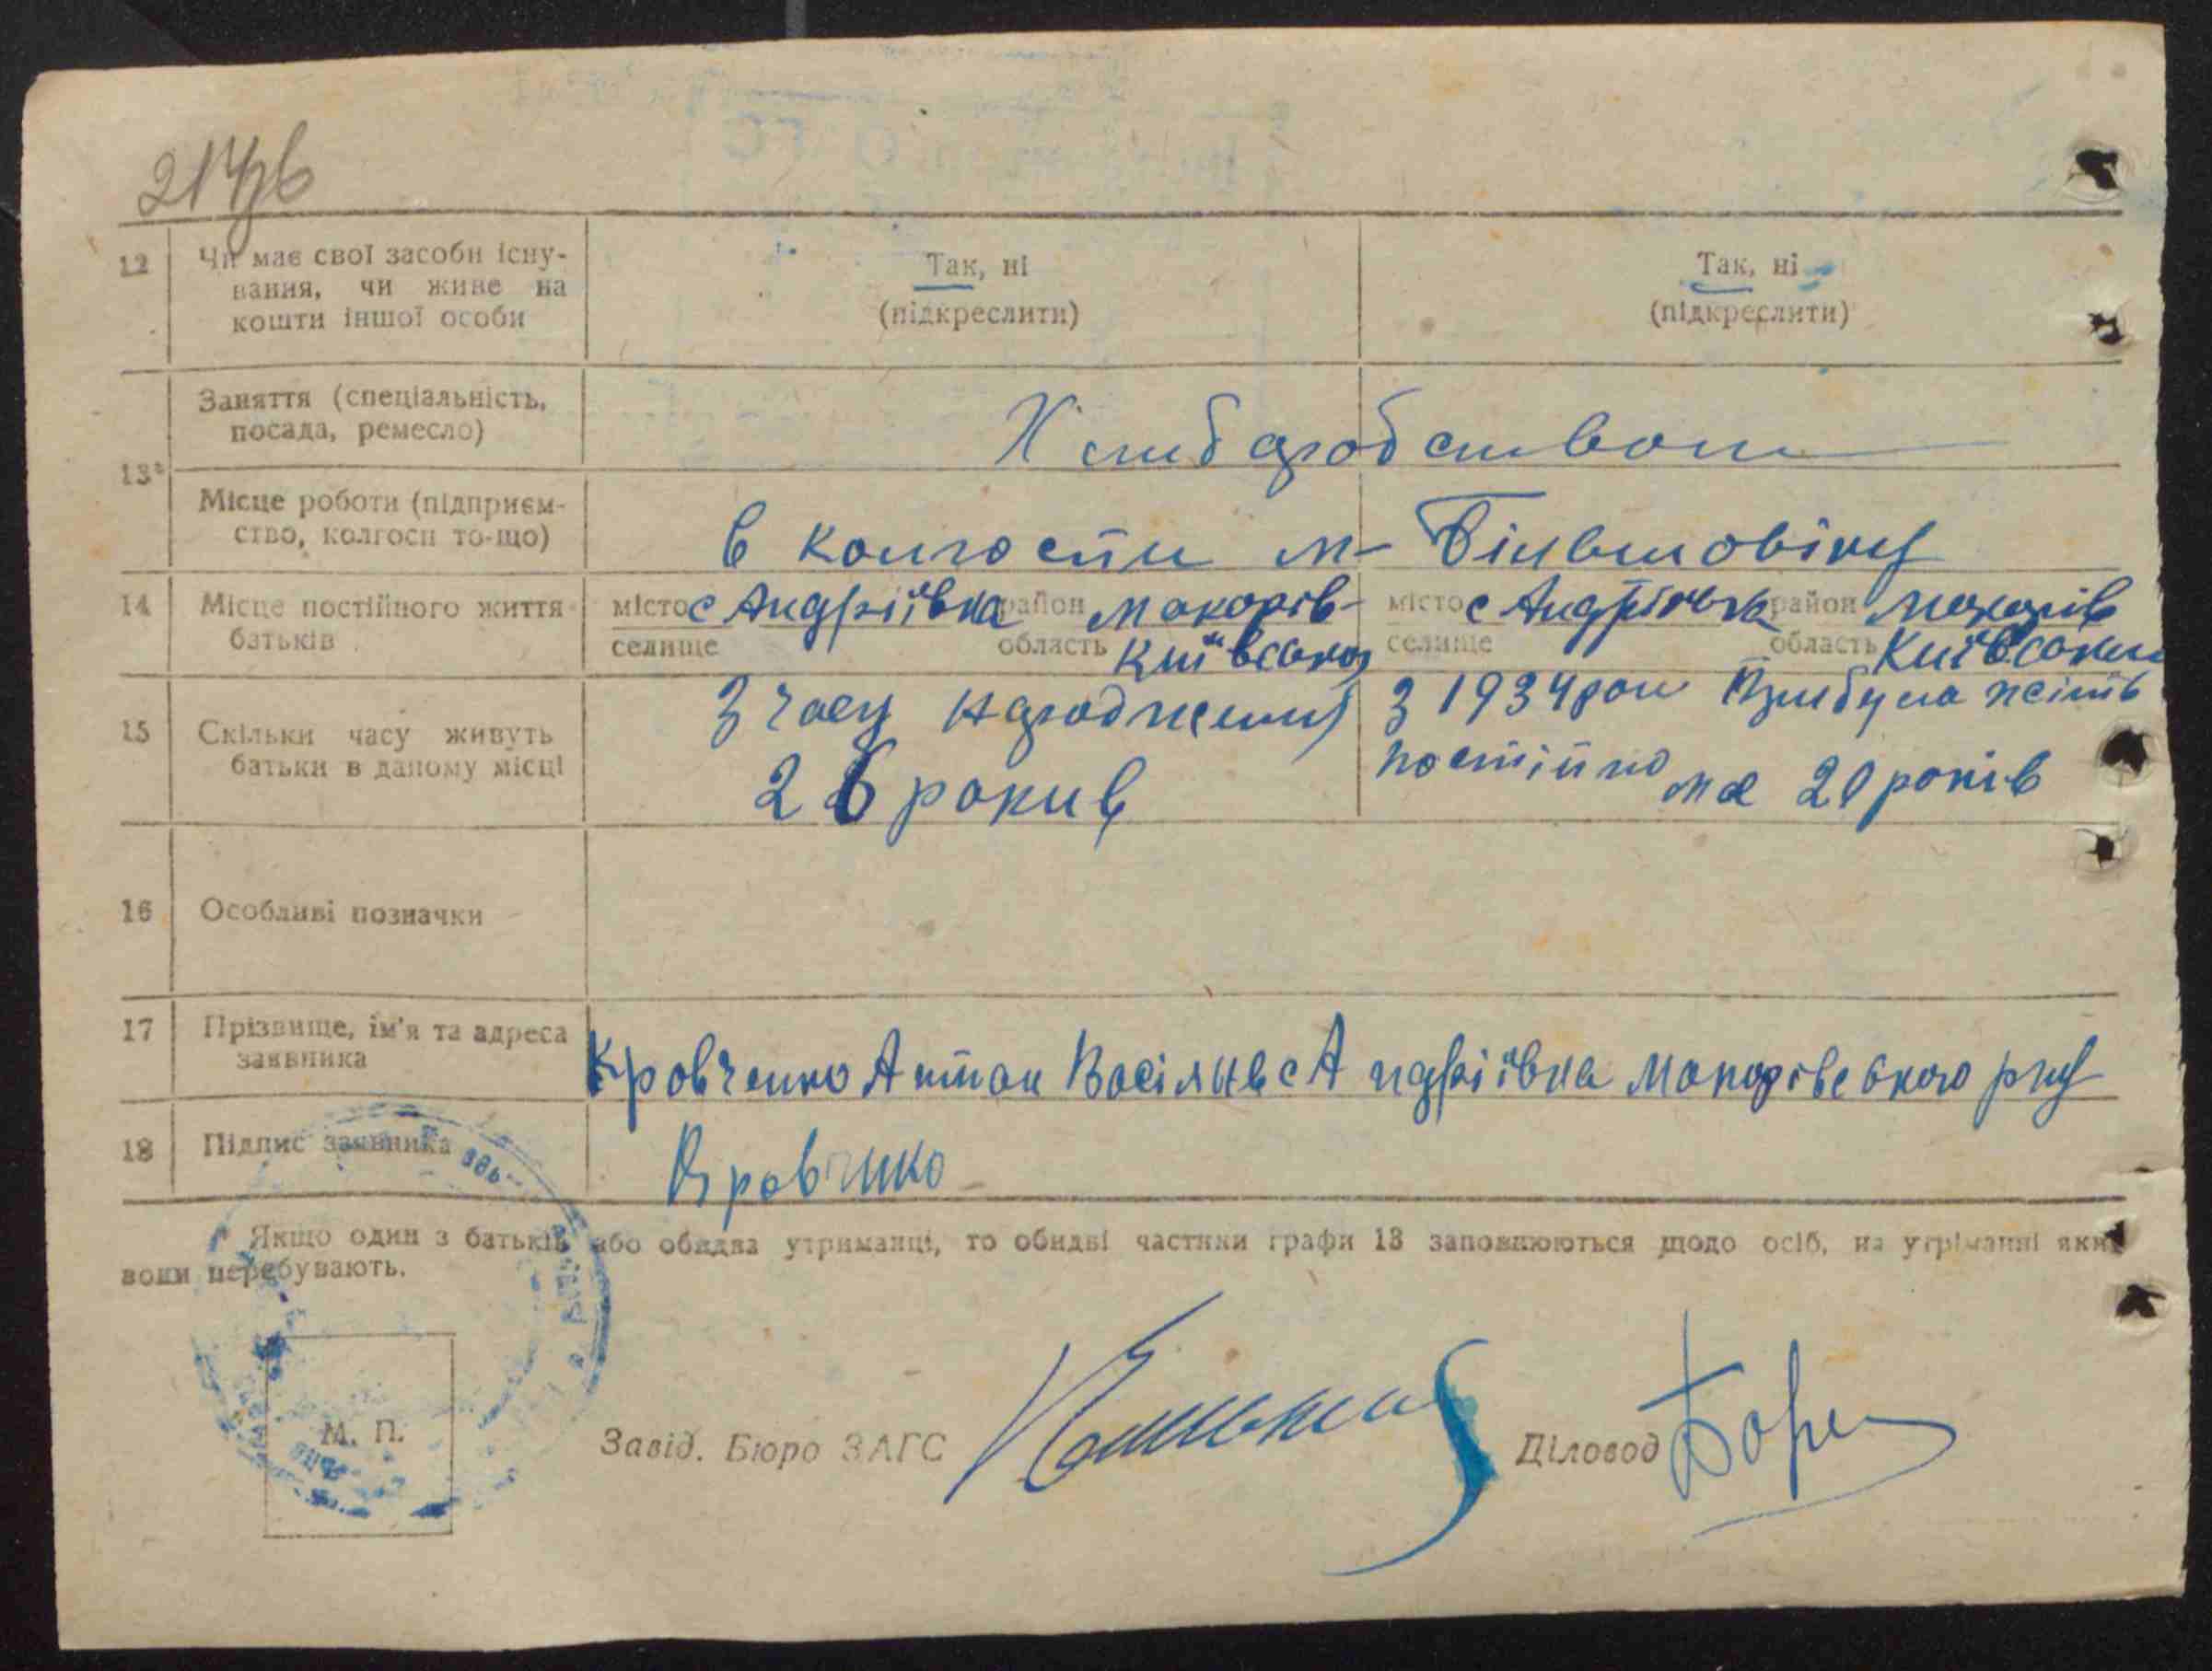 12 Чи має свої засоби існу-
вання, чи живе на
кошти іншої особи
Так, ні
(підкреслити)
Так, ні
(підкреслити)
13
Заняття (спеціальність,
посада, ремесло)
Хлибаробством
Місце роботи (підприєм-
ство, колгосп то-що)
в колгоспи м- Більшовіку
14 Місце постійного життя
батьків
місто с Андріївка район Макарів-
селище область Київська
місто с Андріївка район Макарів
селище область Київська
15 Скільки часу живуть
батьки в даному місці
З часу народження
26 рокив
З 1934 рои Прибула жіть
постійно ма 20 років
16 Особливі позначки
17 Прізвище, ім'я та адреса
заявника
Кровченко Антон с Андріївка Макарівського р-ну
18 Підпис заявника
Кровчнко
Якщо один з батьків або обидва утриманці, то обидві частини графи 13 заповнюються щодо осіб, на утріманні яких
вони перебувають.
М. П.
Завід. Бюро ЗАГС
Діловод